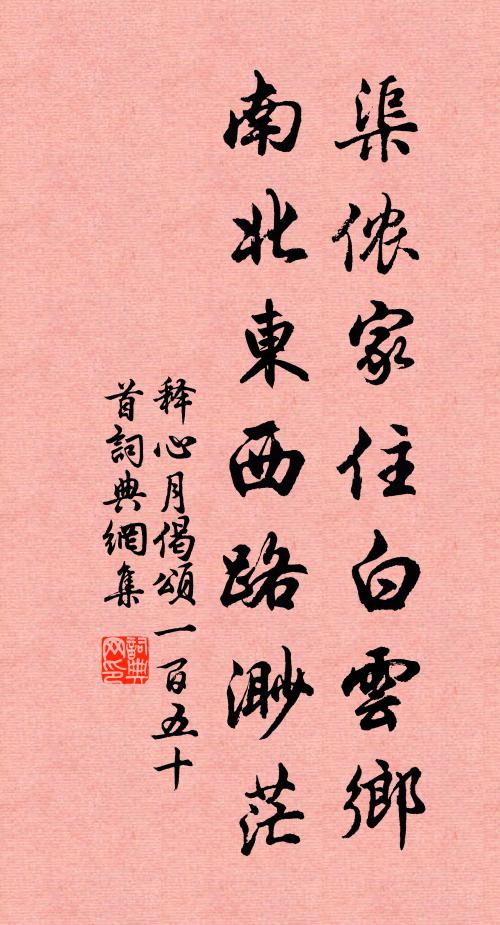 渠侬家住白雲鄉
南北東西路渺茫
释心月偈頌一百五十
首詞典網集
詞典
网印